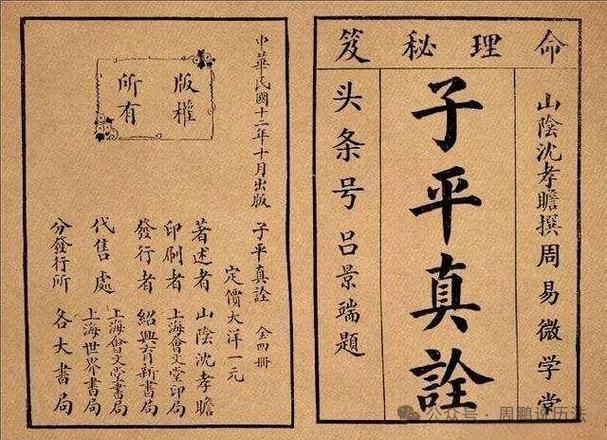 命理秘笈
山陰沈孝瞻撰周易微学堂
子平真詮
头条号吕景端題
中華民國十二年十月出版
版權
所有
子平真詮 全四册
定價大洋一元
著述者 山陰沈孝瞻
印刷者 上海會文堂印局
發行者 紹興育新書局
代售處 上海會文堂書局
上海世界書局
分發行所 各大書局
公众号 · 周鹏说历法